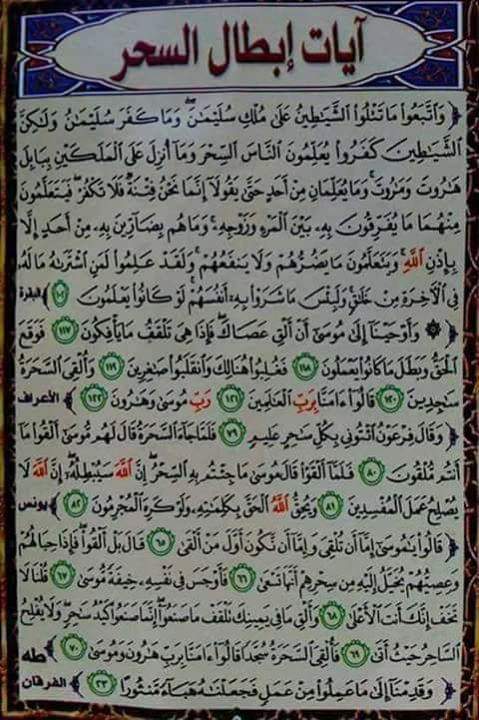 آيات إبطال السحر
﴿ وَاتَّبَعُوا مَا تَتْلُوا الشَّيَاطِينُ عَلَىٰ مُلْكِ سُلَيْمَانَ ۖ وَمَا كَفَرَ سُلَيْمَانُ وَلَٰكِنَّ
الشَّيَاطِينَ كَفَرُوا يُعَلِّمُونَ النَّاسَ السِّحْرَ وَمَا أُنزِلَ عَلَى الْمَلَكَيْنِ بِبَابِلَ
هَارُوتَ وَمَارُوتَ ۚ وَمَا يُعَلِّمَانِ مِنْ أَحَدٍ حَتَّىٰ يَقُولَا إِنَّمَا نَحْنُ فِتْنَةٌ فَلَا تَكْفُرْ ۖ فَيَتَعَلَّمُونَ
مِنْهُمَا مَا يُفَرِّقُونَ بِهِ بَيْنَ الْمَرْءِ وَزَوْجِهِ ۚ وَمَا هُم بِضَارِّينَ بِهِ مِنْ أَحَدٍ إِلَّا
بِإِذْنِ اللَّهِ ۚ وَيَتَعَلَّمُونَ مَا يَضُرُّهُمْ وَلَا يَنفَعُهُمْ ۚ وَلَقَدْ عَلِمُوا لَمَنِ اشْتَرَاهُ مَا لَهُ
فِي الْآخِرَةِ مِنْ خَلَاقٍ ۚ وَلَبِئْسَ مَا شَرَوْا بِهِ أَنفُسَهُمْ ۚ لَوْ كَانُوا يَعْلَمُونَ ١٠٢ ﴾ البقرة
﴿ ۞ وَأَوْحَيْنَا إِلَىٰ مُوسَىٰ أَنْ أَلْقِ عَصَاكَ ۖ فَإِذَا هِيَ تَلْقَفُ مَا يَأْفِكُونَ ١١٧ فَوَقَعَ
الْحَقُّ وَبَطَلَ مَا كَانُوا يَعْمَلُونَ ١١٨ فَغُلِبُوا هُنَالِكَ وَانقَلَبُوا صَاغِرِينَ ١١٩ وَأُلْقِيَ السَّحَرَةُ
سَاجِدِينَ ١٢٠ قَالُوا آمَنَّا بِرَبِّ الْعَالَمِينَ ١٢١ رَبِّ مُوسَىٰ وَهَارُونَ ١٢٢ ﴾ الأعراف
﴿ وَقَالَ فِرْعَوْنُ ائْتُونِي بِكُلِّ سَاحِرٍ عَلِيمٍ ٧٩ فَلَمَّا جَاءَ السَّحَرَةُ قَالَ لَهُم مُّوسَىٰ أَلْقُوا مَا
أَنتُم مُّلْقُونَ ٨٠ فَلَمَّا أَلْقَوْا قَالَ مُوسَىٰ مَا جِئْتُم بِهِ السِّحْرُ ۖ إِنَّ اللَّهَ سَيُبْطِلُهُ ۖ إِنَّ اللَّهَ لَا
يُصْلِحُ عَمَلَ الْمُفْسِدِينَ ٨١ وَيُحِقُّ اللَّهُ الْحَقَّ بِكَلِمَاتِهِ وَلَوْ كَرِهَ الْمُجْرِمُونَ ٨٢ ﴾ يونس
﴿ قَالُوا يَا مُوسَىٰ إِمَّا أَن تُلْقِيَ وَإِمَّا أَن نَّكُونَ أَوَّلَ مَنْ أَلْقَىٰ ٦٥ قَالَ بَلْ أَلْقُوا ۖ فَإِذَا حِبَالُهُمْ
وَعِصِيُّهُمْ يُخَيَّلُ إِلَيْهِ مِن سِحْرِهِمْ أَنَّهَا تَسْعَىٰ ٦٦ فَأَوْجَسَ فِي نَفْسِهِ خِيفَةً مُّوسَىٰ ٦٧ قُلْنَا لَا
تَخَفْ إِنَّكَ أَنتَ الْأَعْلَىٰ ٦٨ وَأَلْقِ مَا فِي يَمِينِكَ تَلْقَفْ مَا صَنَعُوا ۖ إِنَّمَا صَنَعُوا كَيْدُ سَاحِرٍ ۖ وَلَا يُفْلِحُ
السَّاحِرُ حَيْثُ أَتَىٰ ٦٩ فَأُلْقِيَ السَّحَرَةُ سُجَّدًا قَالُوا آمَنَّا بِرَبِّ هَارُونَ وَمُوسَىٰ ٧٠ ﴾ طه
﴿ وَقَدِمْنَا إِلَىٰ مَا عَمِلُوا مِنْ عَمَلٍ فَجَعَلْنَاهُ هَبَاءً مَّنثُورًا ٢٣ ﴾ الفرقان